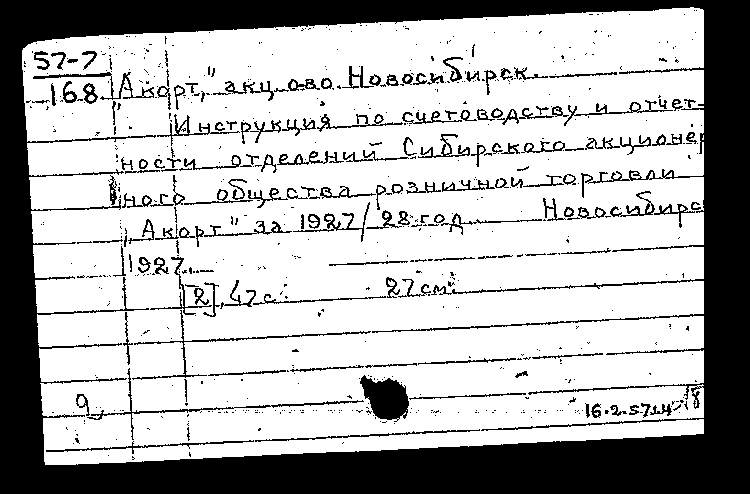 57-7
168
„Акорт," акц. о-во. Новосибирск.
Инструкция по счетоводству и отчет-
ности отделений Сибирского акционер
ного общества розничной торговли
„Акорт" за 1927/28 год. Новосибирс
1927.
[2], 47 с. 27 см.
16.2.57